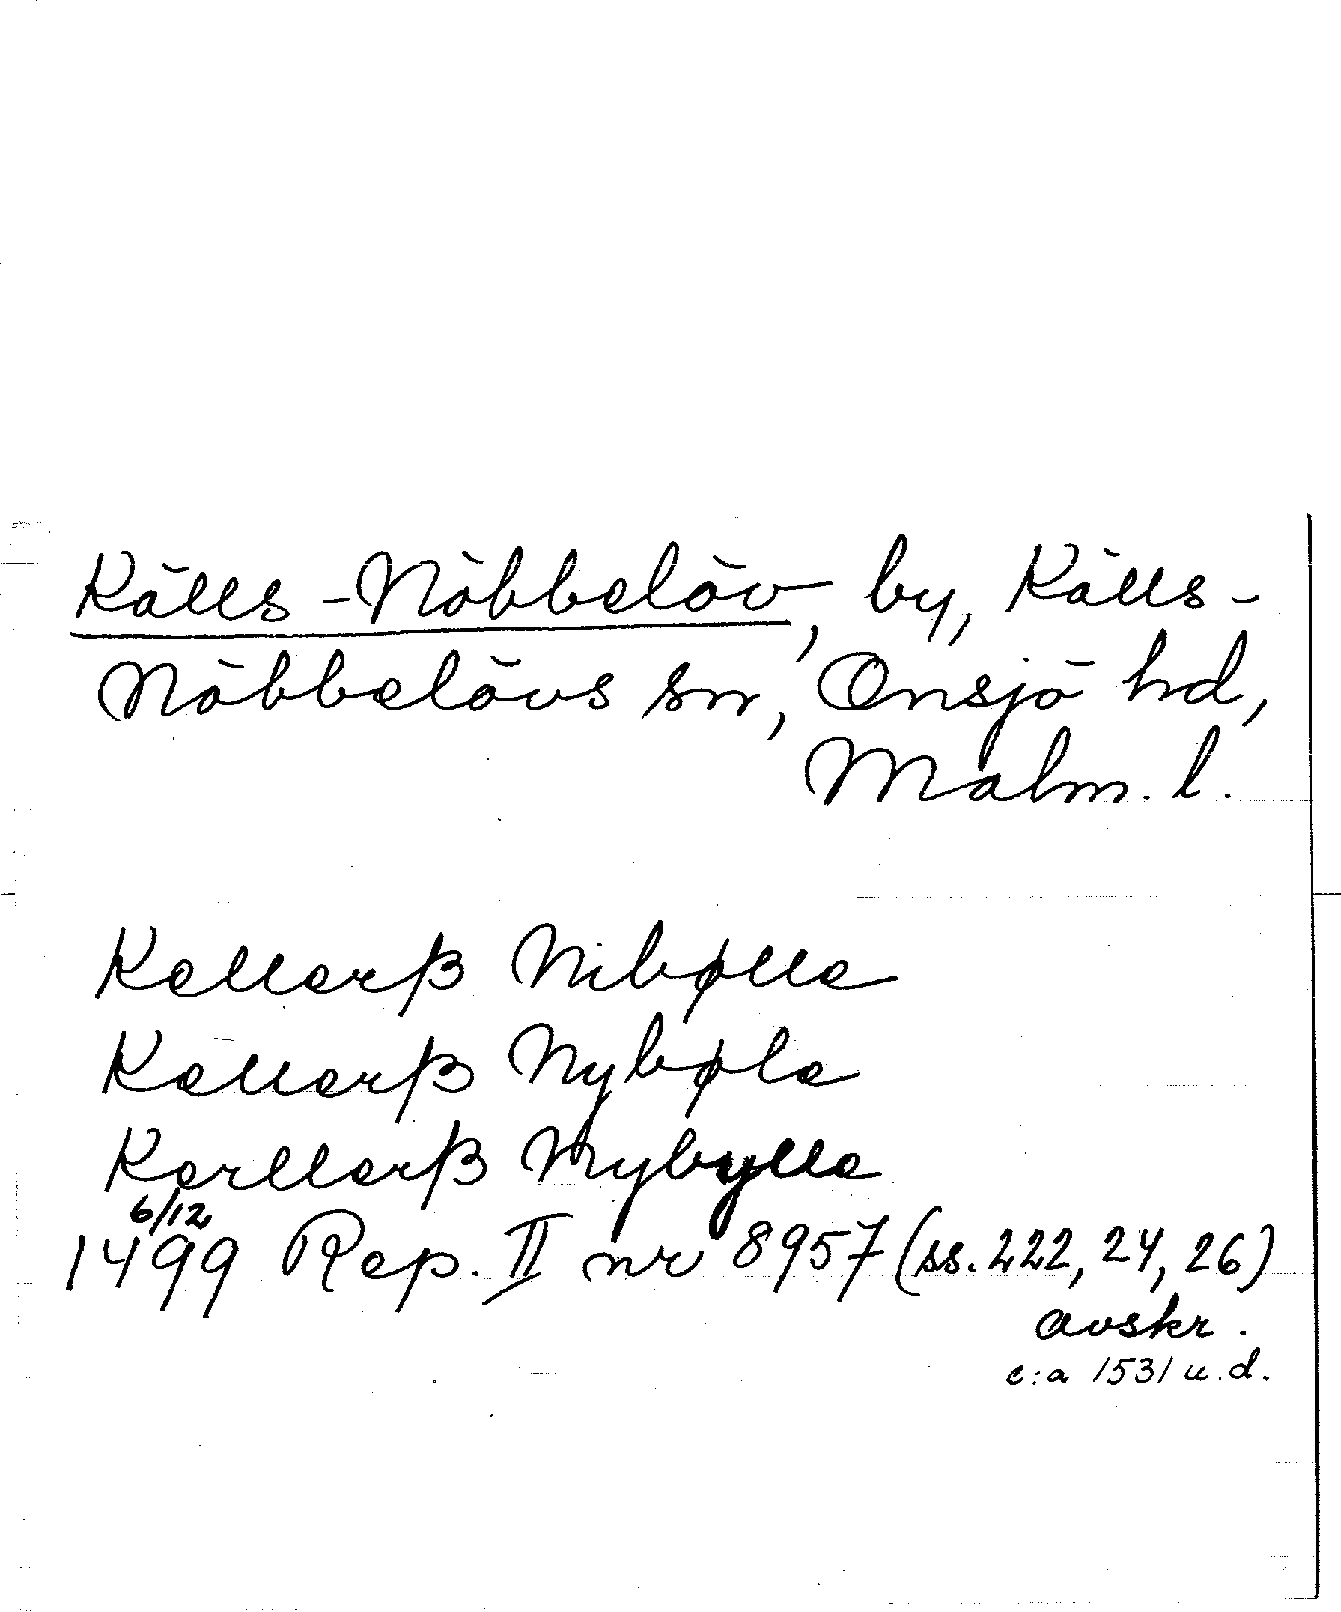 Källs-Nöbbelöv, by, Källs-
Nöbbelövs sn, Onsjö hd,
Malm. l.
Kellerß Nibølle
Kellerß Nybøle
Kerllerß Nybylle
6/12
1499 Rep. II nr 8957 (ss. 222, 24, 26)
avskr.
c:a 1531 u.d.